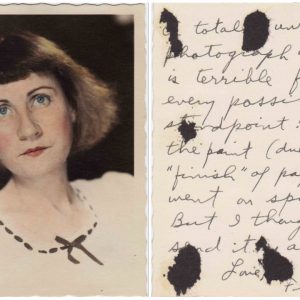 a total un
photograph f
is terrible f
every possi
standpoint:
the paint (due
"finish" of pa
went on sp
But I thou
send it a
Love,